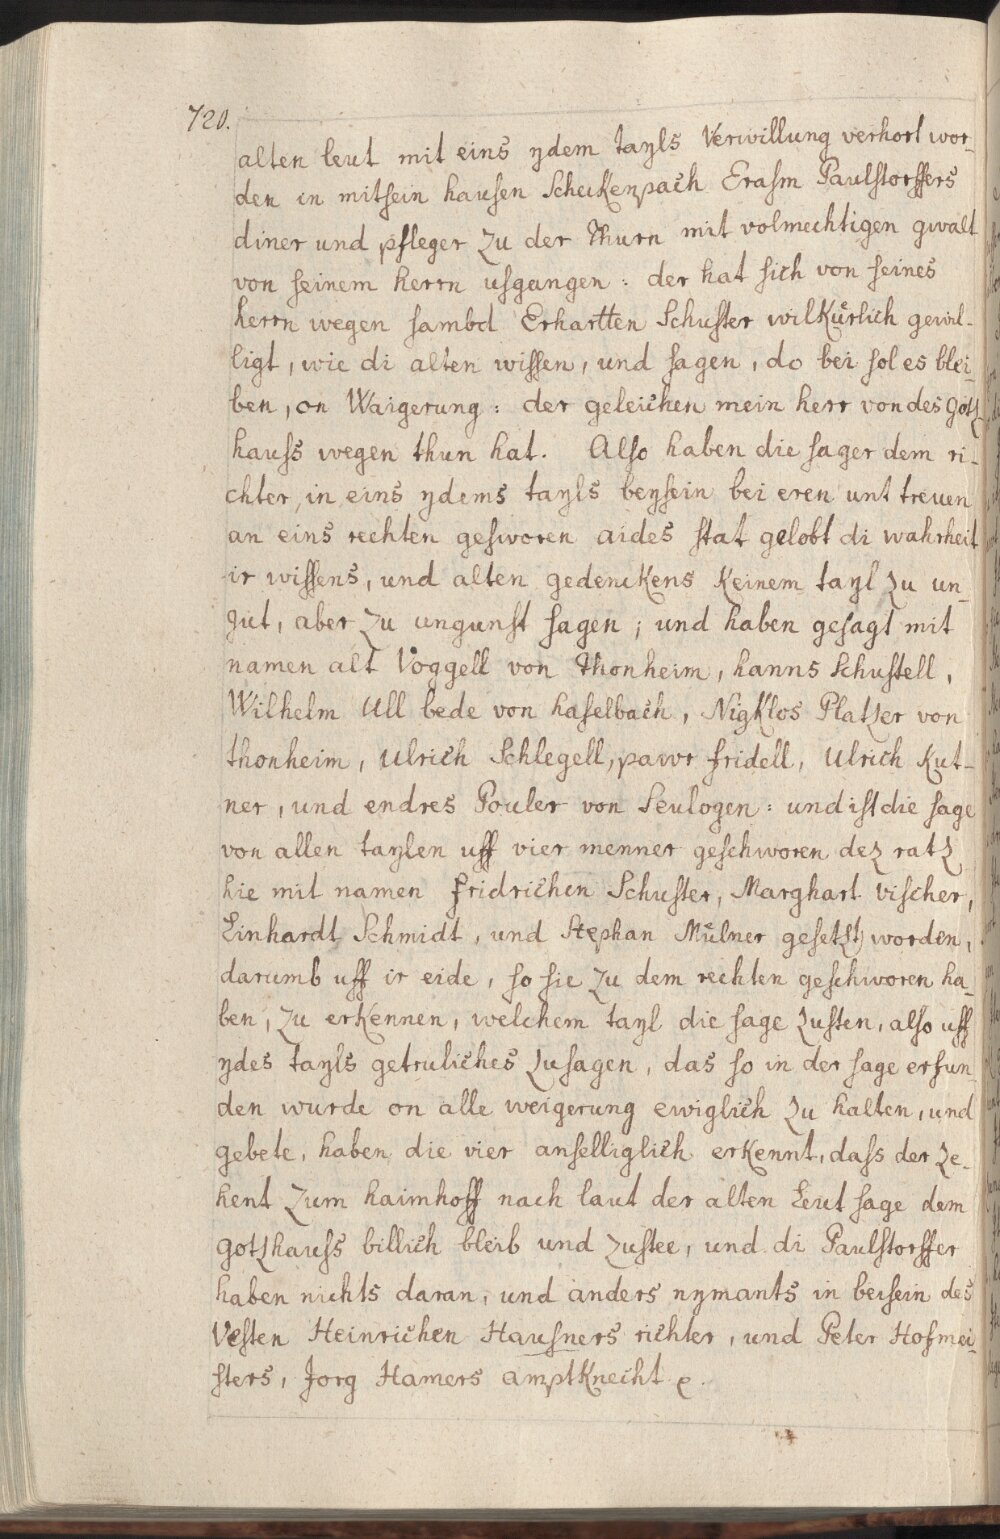 720.
alten leut mit eins ydem tayls Verwillung verhort wor-
den in mitsein hausen Schekenpach Erasm Paulstorffers
diner und pfleger zu der Thurn mit volmechtigen gwalt
von seinem herrn usgangen : der hat sich von seines
herrn wegen sambd Erhartten Schuster wilkürlich gewil-
ligt, wie di alten wissen, und sagen, do bei sol es blei-
ben, on Waigerung : der geleichen mein herr von des Gotz
hauss wegen thun hat. Also haben die sager dem ri-
chter, in eins ydems tayls beysein bei eren unt treuen
an eins rechten gesworen aides stat gelobt di wahrheit
ir wissens, und alten gedenckens Keinem tayl zu un-
gut, aber zu ungunst sagen ; und haben gesagt mit
namen alt Voggell von Thonheim, hanns Schustell,
Wilhelm Ull bede von haselbach, Nigklos Platzer von
thonheim, Ulrich Schlegell, pawr fridell, Ulrich Kut-
ner, und endres Pouler von Seulogen : und ist die sage
von allen taylen uff vier menner geschworen dez ratz
hie mit namen fridrichen Schuster, Marghart vischer,
Linhardt Schmidt, und Stephan Mülner gesetzt worden,
darumb uff ir eide, so sie zu dem rechten geschworen ha-
ben, zu erkennen, welchem tayl die sage zusten, also uff
ydes tayls getruliches zusagen, das so in der sage erfun-
den wurde on alle weigerung ewiglich zu halten, und
gebete, haben die vier anselliglich erkennt, dass der ze-
hent zum haimhoff nach laut der alten Leut sage dem
gotzhauss billich bleib und zustee, und di Paulstorffer
haben nichts daran, und anders nymants in beisein des
Vesten Heinrichen Hausners richter, und Peter Hofmei-
sters, Jorg Hamers amptknecht